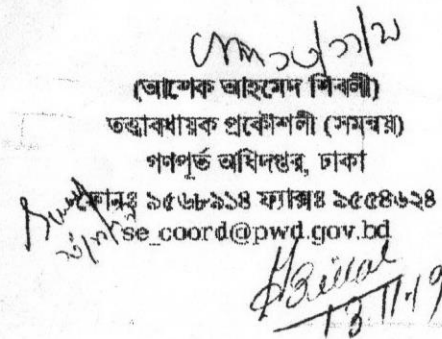 (আশেক আহমেদ শিবলী)
তত্ত্বাবধায়ক প্রকৌশলী (সমন্বয়)
গণপূর্ত অধিদপ্তর, ঢাকা
ফোনঃ ৯৫৬৮৯১৪ ফ্যাক্সঃ ৯৫৫৪৬২৪
se_coord@pwd.gov.bd
13.11.19